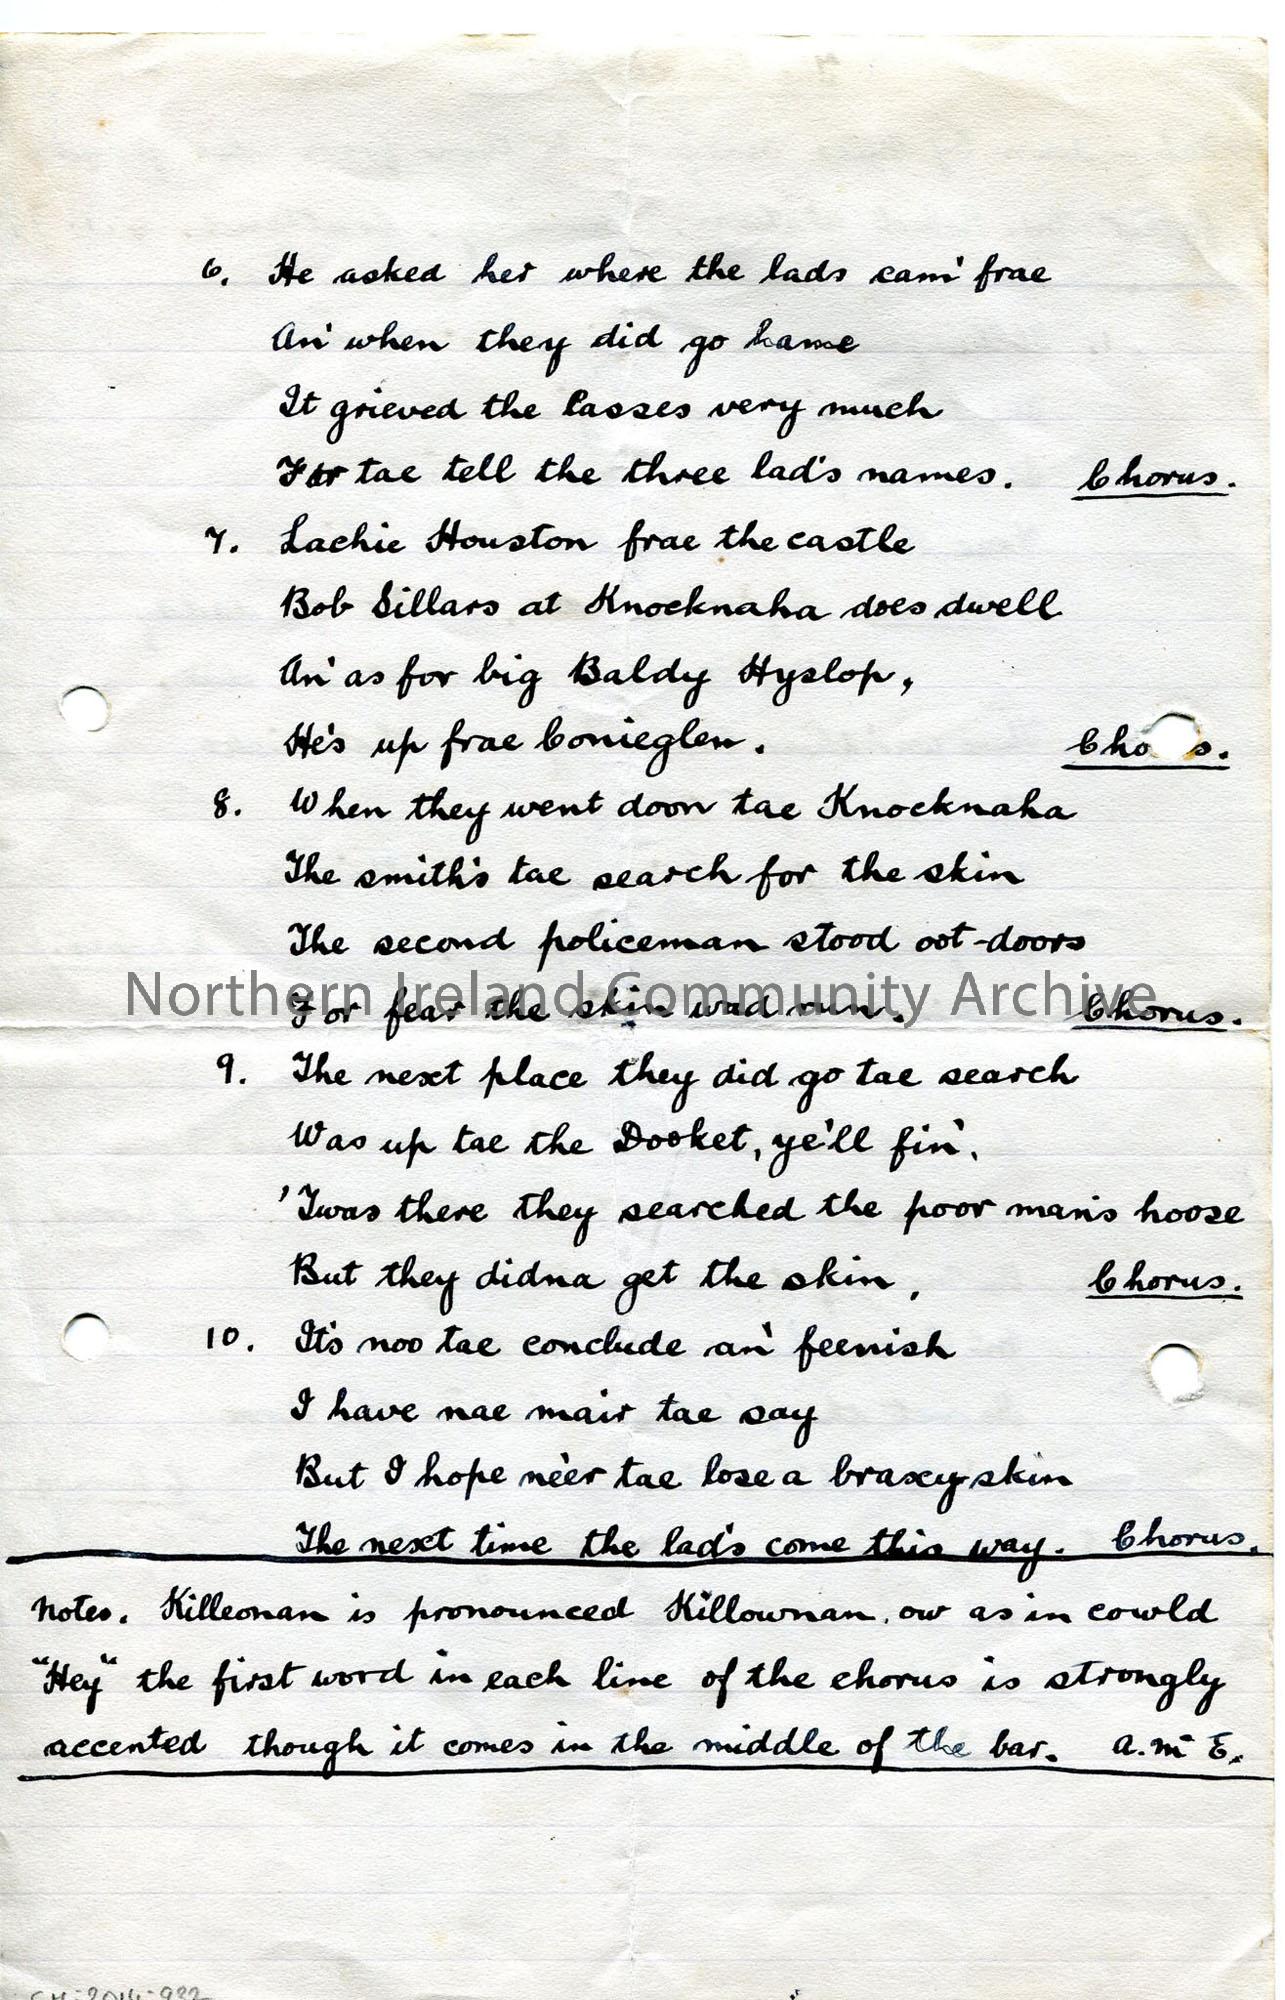 6. He asked her where the lads cam' frae
An' when they did go hame
It grieved the lasses very much
For tae tell the three lad's names. Chorus.
7. Lachie Houston frae the castle
Bob Sillars at Knocknaha does dwell
An' as for big Baldy Hyslop,
He's up frae Conieglen. Cho s.
8. When they went doon tae Knocknaha
The smith's tae search for the skin
The second policeman stood oot-doors
Northern Ireland Community Archive
For fear the skin wad run. Chorus.
9. The next place they did go tae search
Was up tae the Dooket, ye'll fin',
'Twas there they searched the poor man's hoose
But they didna get the skin. Chorus.
10. It's noo tae conclude an' feenish
I have nae mair tae say
But I hope ne'er tae lose a braxy skin
The next time the lad's come this way. Chorus.
Notes. Killeonan is pronounced Killownan, ow as in cowld
"Hey" the first word in each line of the chorus is strongly
accented though it comes in the middle of the bar. A. Mc E.